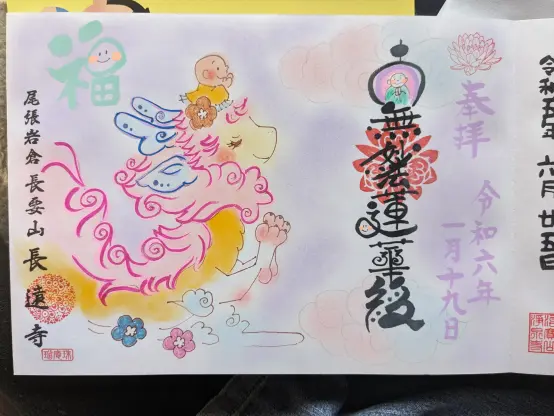 令和五年 六月 廿五日
奉拝
令和六年
一月十九日
南無妙法蓮華経
福
尾張岩倉 長要山 長遠寺